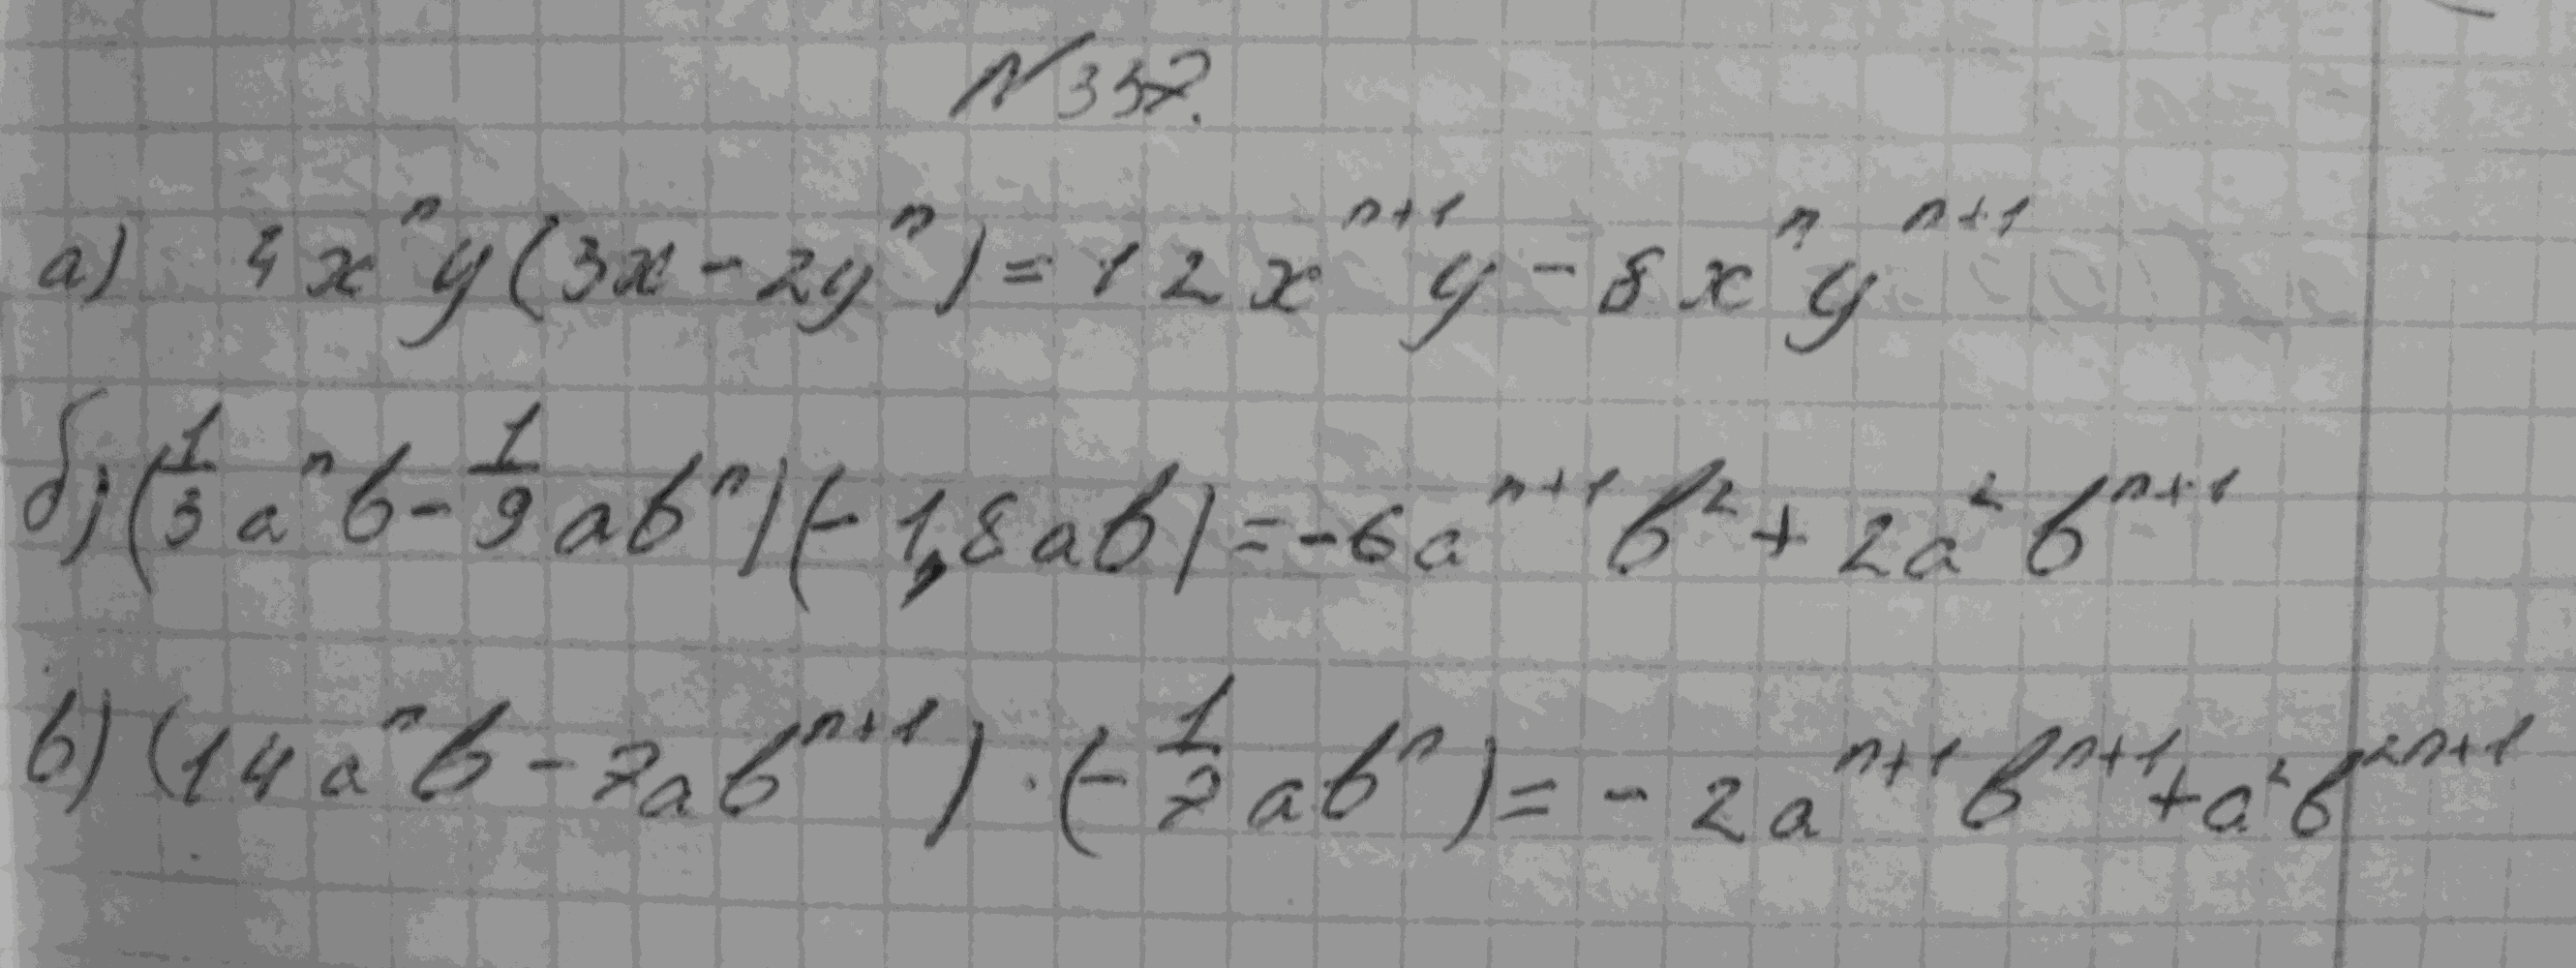 N 337.
а) 4xⁿy(3x - 2yⁿ) = 12xⁿ⁺¹y - 8xⁿyⁿ⁺¹
б) (1/3 aⁿb - 1/9 abⁿ)(-1,8ab) = -6aⁿ⁺¹b² + 2a²bⁿ⁺¹
в) (14aⁿb - 7abⁿ⁺¹) · (-1/7 abⁿ) = -2aⁿ⁺¹bⁿ⁺¹ + a²b²ⁿ⁺¹